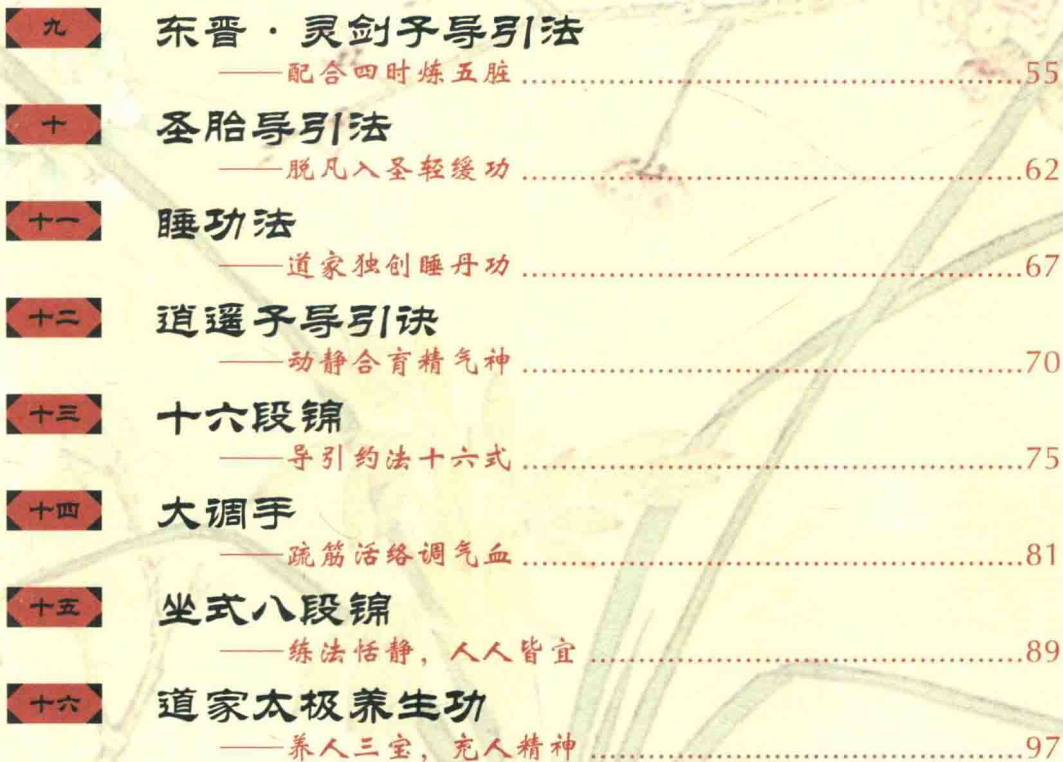 九 东晋·灵剑子导引法
——配合四时炼五脏 55
十 圣胎导引法
——脱凡入圣轻缓功 62
十一 睡功法
——道家独创睡丹功 67
十二 逍遥子导引诀
——动静合育精气神 70
十三 十六段锦
——导引约法十六式 75
十四 大调手
——疏筋活络调气血 81
十五 坐式八段锦
——练法恬静，人人皆宜 89
十六 道家太极养生功
——养人三宝，充人精神 97